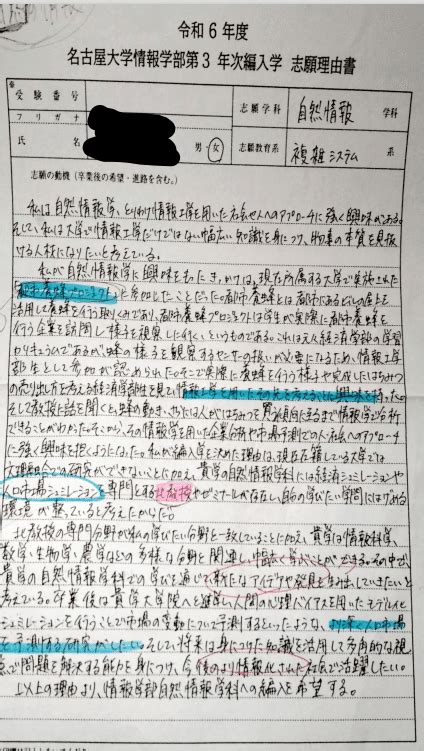 令和6年度
名古屋大学情報学部第3年次編入学 志願理由書
受験番号
志願学科 自然情報 学科
フリガナ
氏名 男・女
志願教育系 複雑システム 系
志願の動機（卒業後の希望・進路を含む。）
私は自然情報学、とりわけ情報工学を用いた社会や人へのアプローチに強く興味がある。
そして、私は大学で情報工学だけではない幅広い知識を身につけ、物事の本質を見抜
ける人材になりたいと考えている。
私が自然情報学に興味をもったきっかけは、現在所属する大学で実施された
都市養蜂プロジェクトに参加したことだった。都市養蜂とは都市にあるビルの屋上を
活用して養蜂を行う取りくみであり、都市養蜂プロジェクトは学生が実際に都市養蜂を
行う企業を訪問して様子を視察しに行くというものである。これは元々経済学部の学習
カリキュラムであるが、蜂の様子を観察するセンサーの扱いが必要になるため、情報工学
部生として参加が認められた。そこで実際に養蜂を行う様子や完成したはちみつ
の売り出し方を考える経済学部生を見て、情報工学を用いた
そして教授に話を聞くと、蜂の動き、さらには人がはちみつを 情報学で分析
できることがわかった。そこから、その情報学を用いた企業分析や市場予測での人・社会へのアプローチ
に強く興味を抱くようになった。私が編入学を決めた理由は、現在在籍している大学では
文理融合での研究ができないことに加え、貴学の自然情報学科には経済シミュレーションや
人工市場シミュレーションを専門とする 教授やゼミナールが存在し、自分の学びたい学問にはげめる
環境が整っていると考えたからだ。
教授の専門分野が私の学びたい分野と一致していることに加え、貴学は情報科学、
数学、生物学、農学などの多様な分野と関連し幅広く学ぶことができる。その中で、
貴学の自然情報学科での学びを通じて新たなアイデアや発見を生み出していきたいと
考えている。卒業後は貴学大学院へと進学し、人間の心理バイアスを用いたモデル化や
シミュレーションを行うことで市場の変動について予測するといったような、 人工市場
を予測する研究がしたい。そして、将来は身につけた知識を活用して多角的な視
点で問題を解決する能力を身につけ、今後のより情報化された社会で活躍したい。
以上の理由より、情報学部自然情報学科への編入を希望する。